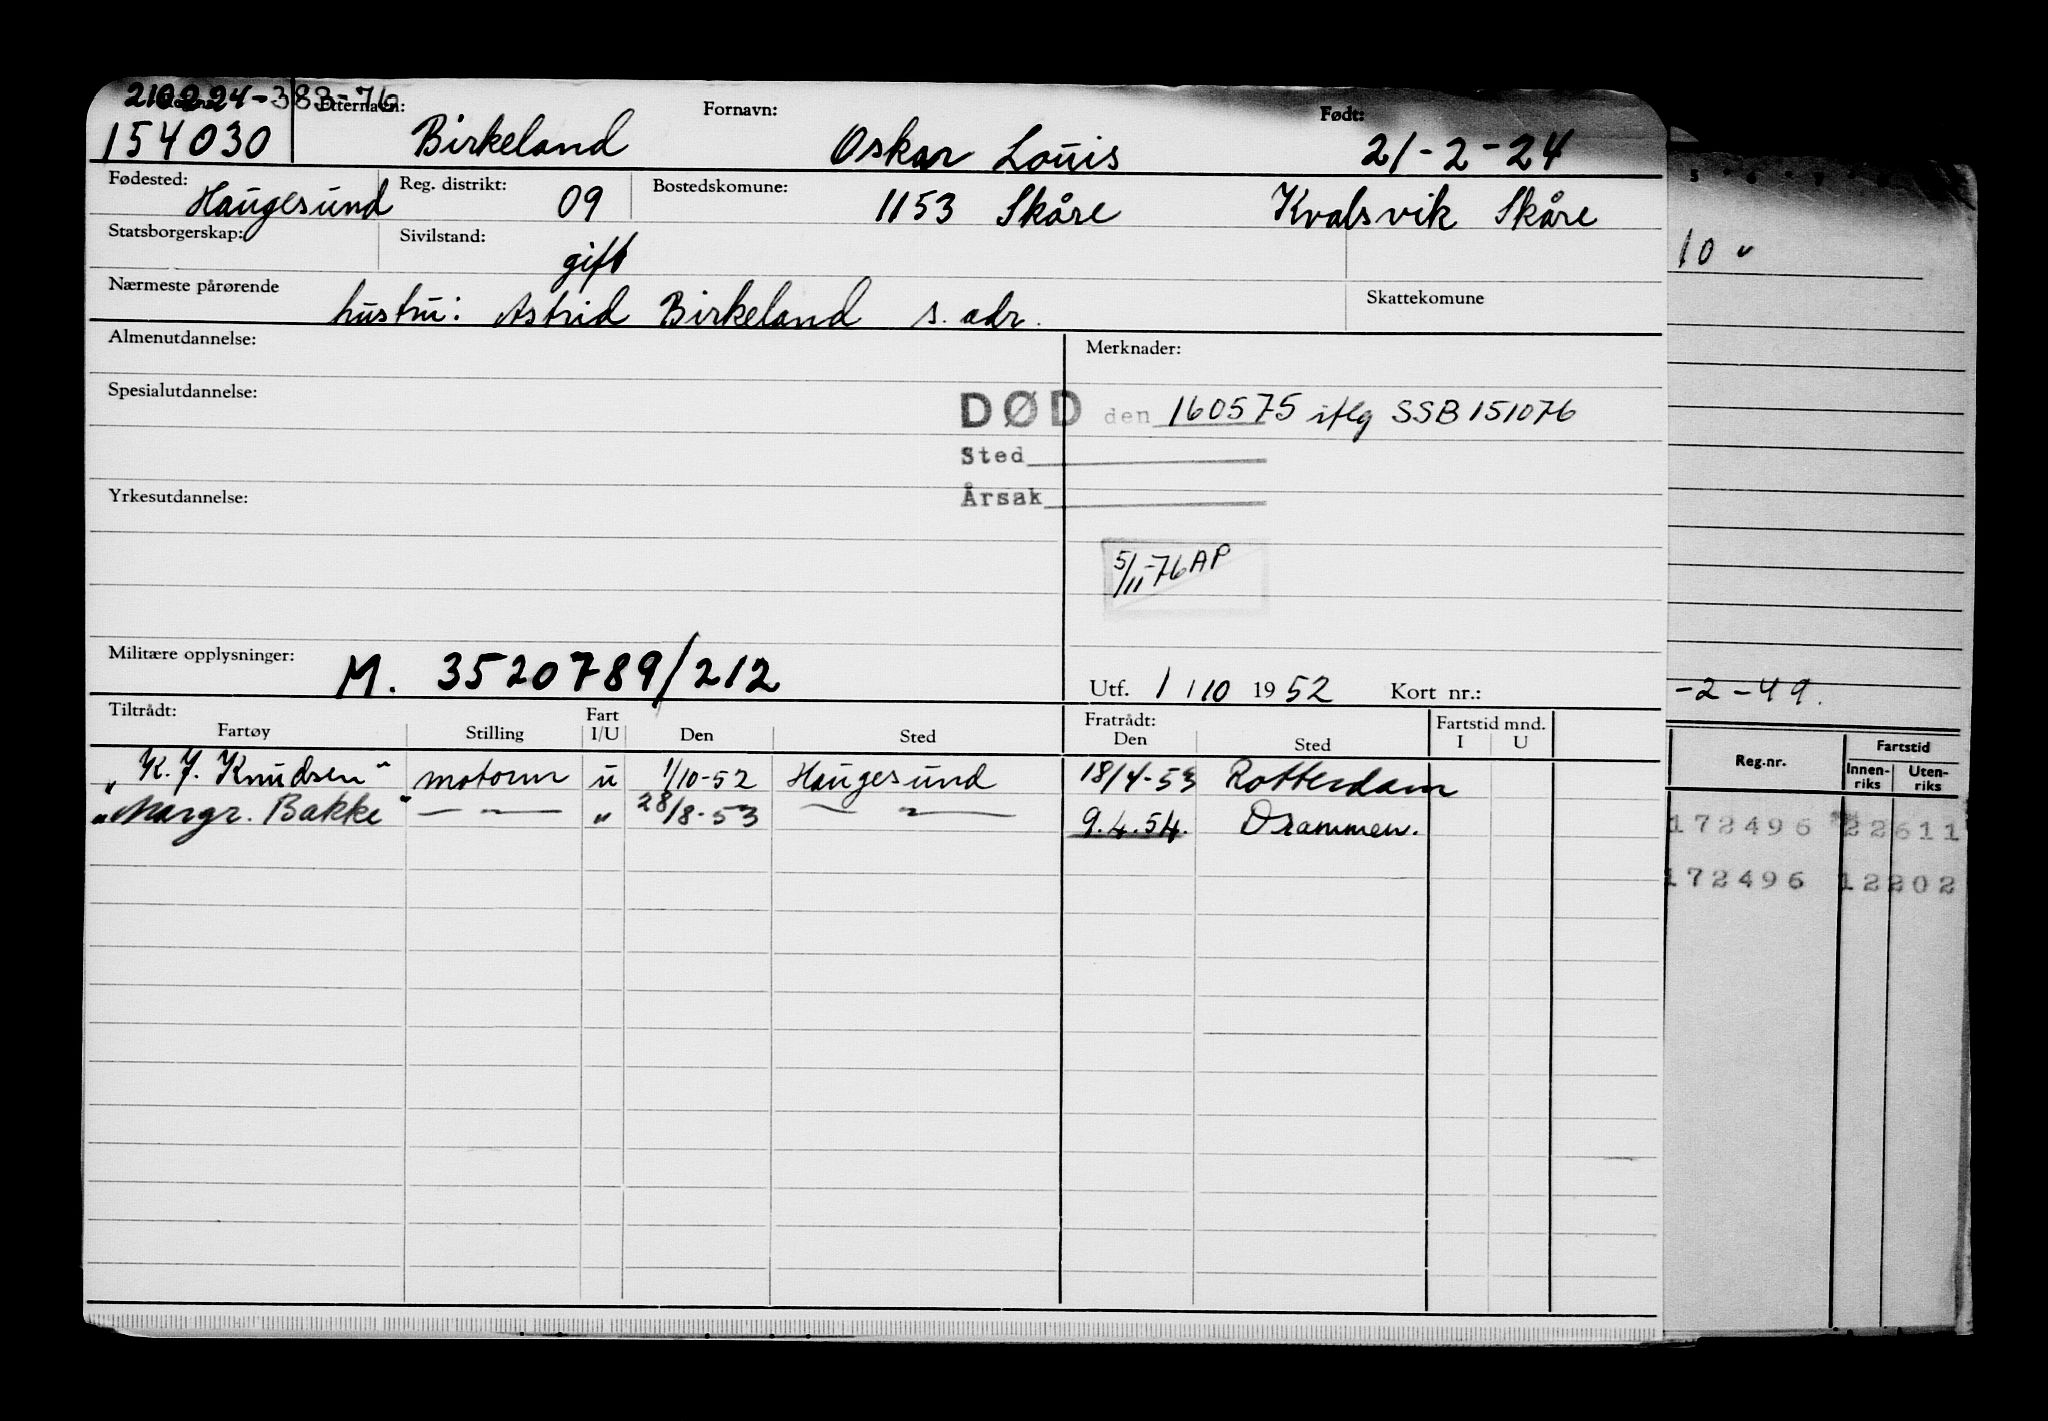 210224-383-76
Etternavn: Birkeland Fornavn: Oskar Louis Født: 21-2-24
154030
Fødested: Haugesund Reg. distrikt: 09 Bostedskomune: 1153 Skåre Kvalsvik Skåre
Statsborgerskap: Sivilstand: gift
Nærmeste pårørende hustru: Astrid Birkeland s. adr. Skattekomune
Almenutdannelse: Merknader:
Spesialutdannelse:
DØD den 160575 iflg SSB 151076
Sted
Årsak
Yrkesutdannelse:
5/11-76 AP
Militære opplysninger: M. 3520789/212
Utf. 1/10 1952 Kort nr.:
Tiltrådt: Fratrådt: Fartstid mnd.
Fartøy Stilling Fart I/U Den Sted Den Sted I U
"K. J. Knudsen" motorm u 1/10-52 Haugesund 18/4-53 Rotterdam
"Margr. Bakke" — " — " 28/8-53 — " — 9.4.54. Drammen.
10 "
-2-49.
Reg.nr. Fartstid
Innen-riks Uten-riks
172496 22611
172496 12202